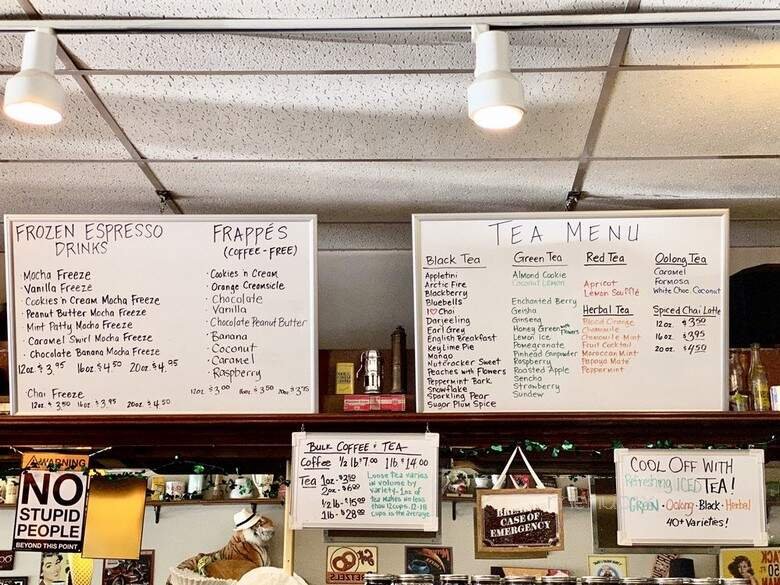 FROZEN ESPRESSO
DRINKS
Mocha Freeze
Vanilla Freeze
Cookies n Cream Mocha Freeze
Peanut Butter Mocha Freeze
Mint Patty Mocha Freeze
Caramel Swirl Mocha Freeze
Chocolate Banana Mocha Freeze
12oz. $3.95 16oz. $4.50 20oz. $4.95
Chai Freeze
12oz. $3.50 16oz. $3.95 20oz. $4.50
FRAPPÉS
(COFFEE-FREE)
· Cookies n Cream
· Orange Creamsicle
· Chocolate
Vanilla
· Chocolate Peanut Butter
· Banana
· Coconut
· Caramel
· Raspberry
12oz. $3.00 16oz. $3.50 20oz. $3.95
TEA MENU
Black Tea
Appletini
Arctic Fire
Blackberry
Bluebells
I♡Chai
Darjeeling
Earl Grey
English Breakfast
Key Lime Pie
Mango
Nutcracker Sweet
Peaches with Flowers
Peppermint Bark
Snowflake
Sparkling Pear
Sugar Plum Spice
Green Tea
Almond Cookie
Coconut Lemon
Enchanted Berry
Geisha
Ginseng
Honey Green w/ Flowers
Lemon Ice
Pomegranate
Pinhead Gunpowder
Raspberry
Roasted Apple
Sencha
Strawberry
Sundew
Red Tea
Apricot
Lemon Soufflé
Herbal Tea
Blood Orange
Chamomile
Chamomile Mint
Fruit Cocktail
Moroccan Mint
Papaya Mate
Peppermint
Oolong Tea
Caramel
Formosa
White Choc. Coconut
Spiced Chai Latte
12oz. $3.50
16oz. $3.95
20oz. $4.50
WARNING
NO
STUPID
PEOPLE
BEYOND THIS POINT
BULK COFFEE & TEA
Coffee ½ lb $7.00 1 lb $14.00
Tea 1oz. $3.50
2oz. $6.00
½ lb. $15.00
1lb. $28.00
Loose tea varies
in volume by
variety. 1oz of
tea makes no less
than 12 cups. 12-18
cups is the average.
CASE OF
EMERGENCY
COOL OFF WITH
Refreshing ICED TEA!
GREEN · Oolong · Black · Herbal
40+ Varieties!
PRETZELS